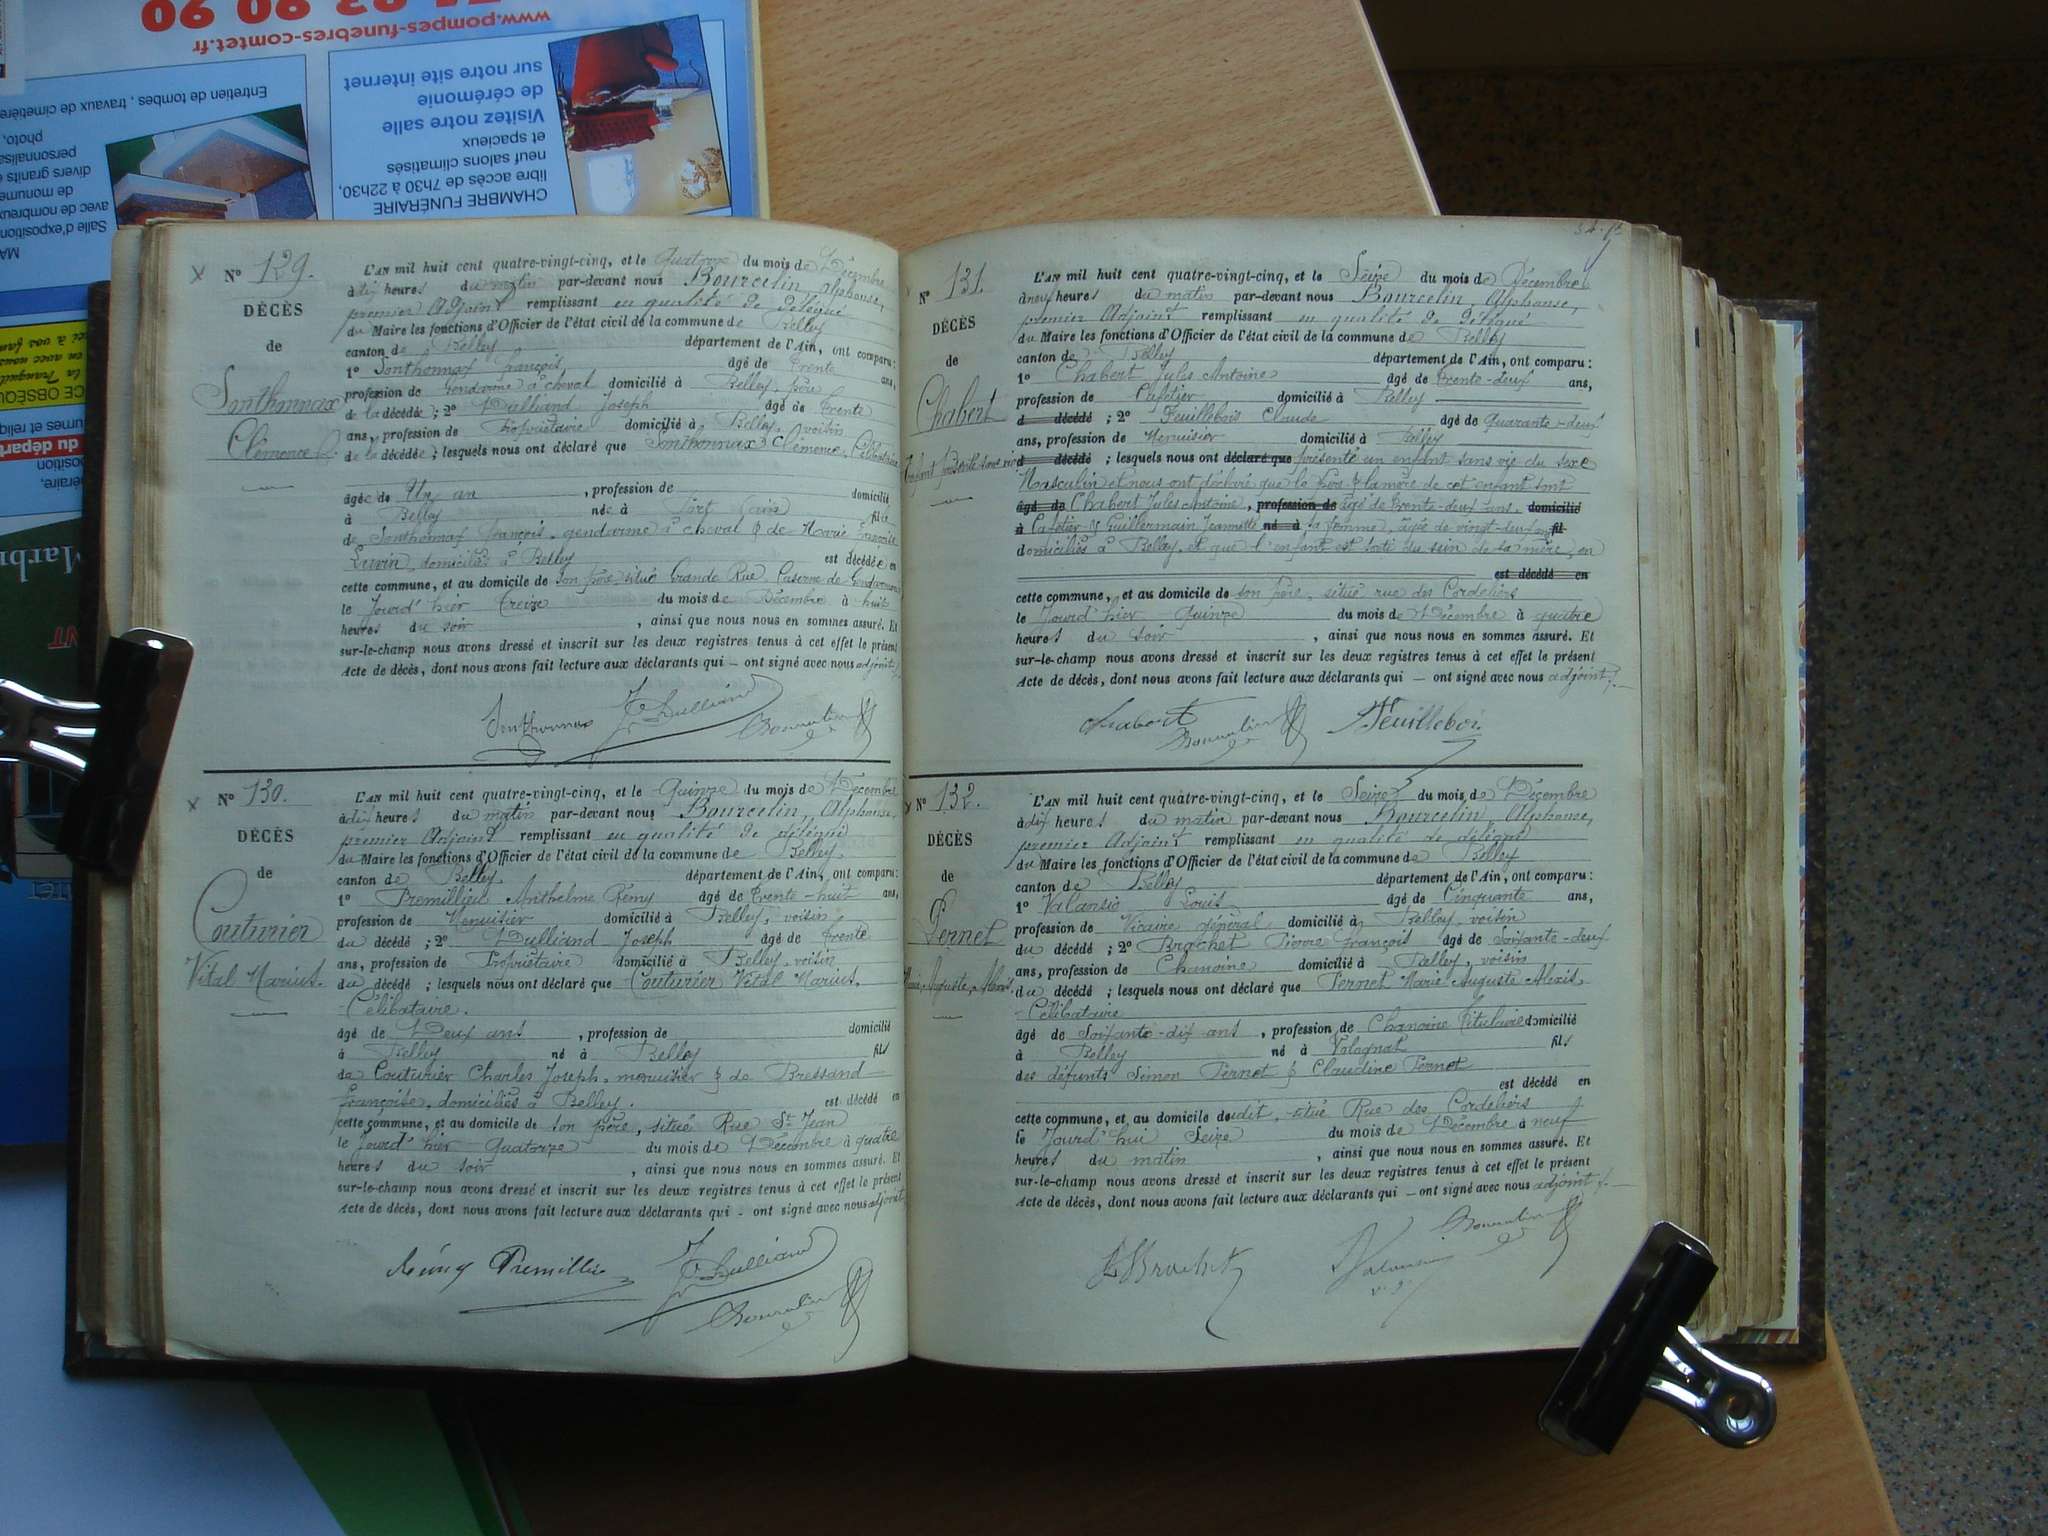 74 83 90 90
www.pompes-funebres-comtet.fr
Entretien de tombes, travaux de cimetière
photo,
personnalis
divers granits
de monume
avec de nombreux
Salle d'exposition
CHAMBRE FUNÉRAIRE
libre accès de 7h30 à 22h30,
neuf salons climatisés
et spacieux
Visitez notre salle
de cérémonie
sur notre site internet
N° 129.
DÉCÈS
de
Sonthonnax
Clémence
L'AN mil huit cent quatre-vingt-cinq, et le Quatorze du mois de Décembre
à dix heures du matin par-devant nous Bourcelin, Alphonse,
premier Adjoint remplissant en qualité de délégué
du Maire les fonctions d'Officier de l'état civil de la commune de Belley
canton de Belley département de l'Ain, ont comparu:
1° Sonthonnax François âgé de Trente ans,
profession de Gendarme à cheval domicilié à Belley, père
de la décédée; 2° Dulliand Joseph âgé de Trente
ans, profession de Propriétaire domicilié à Belley, voisin
de la décédée; lesquels nous ont déclaré que Sonthonnax Clémence, Célibataire
âgée de Un an, profession de domiciliée
à Belley née à fille
de Sonthonnax François, gendarme à cheval & de Marie Françoise
domiciliés à Belley est décédée en
cette commune, et au domicile de son père, situé Grande Rue, Caserne de Gendarmerie
le Jourd'hier Treize du mois de Décembre à huit
heures du soir, ainsi que nous nous en sommes assuré. Et
sur-le-champ nous avons dressé et inscrit sur les deux registres tenus à cet effet le présent
Acte de décès, dont nous avons fait lecture aux déclarants qui — ont signé avec nous adjoint.
Sonthonnax J. Dulliand Bourcelin
N° 130.
DÉCÈS
de
Couturier
Vital Marius.
L'AN mil huit cent quatre-vingt-cinq, et le Quinze du mois de Décembre
à dix heures du matin par-devant nous Bourcelin, Alphonse,
premier Adjoint remplissant en qualité de délégué
du Maire les fonctions d'Officier de l'état civil de la commune de Belley.
canton de Belley département de l'Ain, ont comparu:
1° Premillieu Anthelme Rémy âgé de Trente-huit ans,
profession de Menuisier domicilié à Belley, voisin
du décédé; 2° Dulliand Joseph âgé de Trente
ans, profession de Propriétaire domicilié à Belley, voisin
du décédé; lesquels nous ont déclaré que Couturier Vital Marius,
Célibataire.
âgé de Deux ans, profession de domicilié
à Belley né à Belley fils
de Couturier Charles Joseph, menuisier & de Bressand
Françoise, domiciliés à Belley. est décédé en
cette commune, et au domicile de son père, situé Rue St Jean
le Jourd'hier Quatorze du mois de Décembre à quatre
heures du soir, ainsi que nous nous en sommes assuré. Et
sur-le-champ nous avons dressé et inscrit sur les deux registres tenus à cet effet le présent
Acte de décès, dont nous avons fait lecture aux déclarants qui — ont signé avec nous adjoint
Rémy Premillieu J. Dulliand Bourcelin
N° 131.
DÉCÈS
de
Chabert
Enfant présenté sans vie
L'AN mil huit cent quatre-vingt-cinq, et le Seize du mois de Décembre
à neuf heures du matin par-devant nous Bourcelin, Alphonse,
premier Adjoint remplissant en qualité de délégué
du Maire les fonctions d'Officier de l'état civil de la commune de Belley
canton de Belley département de l'Ain, ont comparu:
1° Chabert Jules Antoine âgé de Trente-deux ans,
profession de Cafetier domicilié à Belley
d décédé; 2° Feuillebois Claude âgé de Quarante-deux
ans, profession de Menuisier domicilié à Belley
d décédé; lesquels nous ont déclaré que présenté un enfant sans vie du sexe
Masculin et nous ont déclaré que le père & la mère de cet enfant sont
âgé de Chabert Jules Antoine, profession de âgé de Trente-deux ans, domicilié
à Cafetier & Guillermain Jeannette né à sa femme, âgée de vingt-deux ans fil
domiciliés à Belley, et que l'enfant est sorti du sein de sa mère, en
est décédé en
cette commune, et au domicile de son père, situé rue des Cordeliers
le Jourd'hier Quinze du mois de Décembre à quatre
heures du soir, ainsi que nous nous en sommes assuré. Et
sur-le-champ nous avons dressé et inscrit sur les deux registres tenus à cet effet le présent
Acte de décès, dont nous avons fait lecture aux déclarants qui — ont signé avec nous adjoint.
Chabert Bourcelin Feuillebois
N° 132.
DÉCÈS
de
Pernet
Marie, Auguste, Alexis.
L'AN mil huit cent quatre-vingt-cinq, et le Seize du mois de Décembre
à dix heures du matin par-devant nous Bourcelin, Alphonse,
premier Adjoint remplissant en qualité de délégué
du Maire les fonctions d'Officier de l'état civil de la commune de Belley
canton de Belley département de l'Ain, ont comparu:
1° Valansio Louis âgé de Cinquante ans,
profession de Vicaire général domicilié à Belley, voisin
du décédé; 2° Brachet Pierre François âgé de Soixante-deux
ans, profession de Chanoine domicilié à Belley, voisin
du décédé; lesquels nous ont déclaré que Pernet Marie Auguste Alexis,
Célibataire
âgé de Soixante-dix ans, profession de Chanoine titulaire domicilié
à Belley né à Volognat fils
des défunts Simon Pernet & Claudine Pernet
est décédé en
cette commune, et au domicile dudit, situé Rue des Cordeliers
le Jourd'hui Seize du mois de Décembre à neuf
heures du matin, ainsi que nous nous en sommes assuré. Et
sur-le-champ nous avons dressé et inscrit sur les deux registres tenus à cet effet le présent
Acte de décès, dont nous avons fait lecture aux déclarants qui — ont signé avec nous adjoint.
Brachet Valansio v. g. Bourcelin